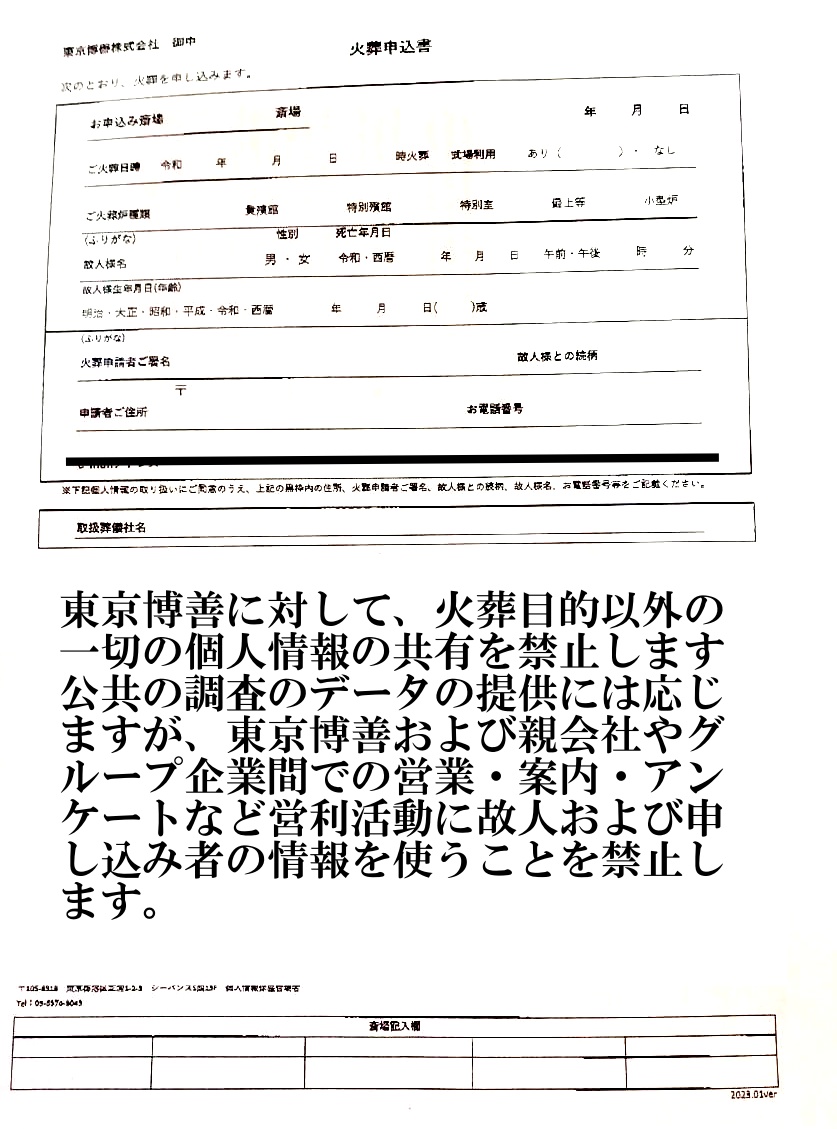 東京博善株式会社 御中
火葬申込書
次のとおり、火葬を申し込みます。
お申込み斎場 斎場 年 月 日
ご火葬日時 令和 年 月 日 時火葬 式場利用 あり（ ）・ なし
ご火葬炉種類 貴殯館 特別殯館 特別室 最上等 小型炉
(ふりがな) 性別 死亡年月日
故人様名 男 ・ 女 令和・西暦 年 月 日 午前・午後 時 分
故人様生年月日(年齢)
明治・大正・昭和・平成・令和・西暦 年 月 日( )歳
(ふりがな)
火葬申請者ご署名 故人様との続柄
〒
申請者ご住所 お電話番号
※下記個人情報の取り扱いにご同意のうえ、上記の黒枠内の住所、火葬申請者ご署名、故人様との続柄、故人様名、お電話番号等をご記載ください。
取扱葬儀社名
東京博善に対して、火葬目的以外の
一切の個人情報の共有を禁止します
公共の調査のデータの提供には応じ
ますが、東京博善および親会社やグ
ループ企業間での営業・案内・アン
ケートなど営利活動に故人および申
し込み者の情報を使うことを禁止し
ます。
個人情報保護管理者
斎場記入欄
2023.01ver